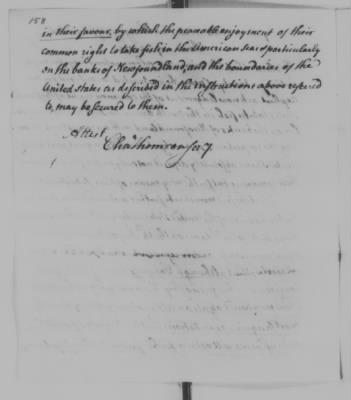 158
in their favour, by which the peaceable enjoyment of their
common right to take fish in the American seas & particularly
on the banks of Newfoundland, and the boundaries of the
United States as described in the instructions above refered
to, may be secured to them.
Attest
Cha Thomson Secy.